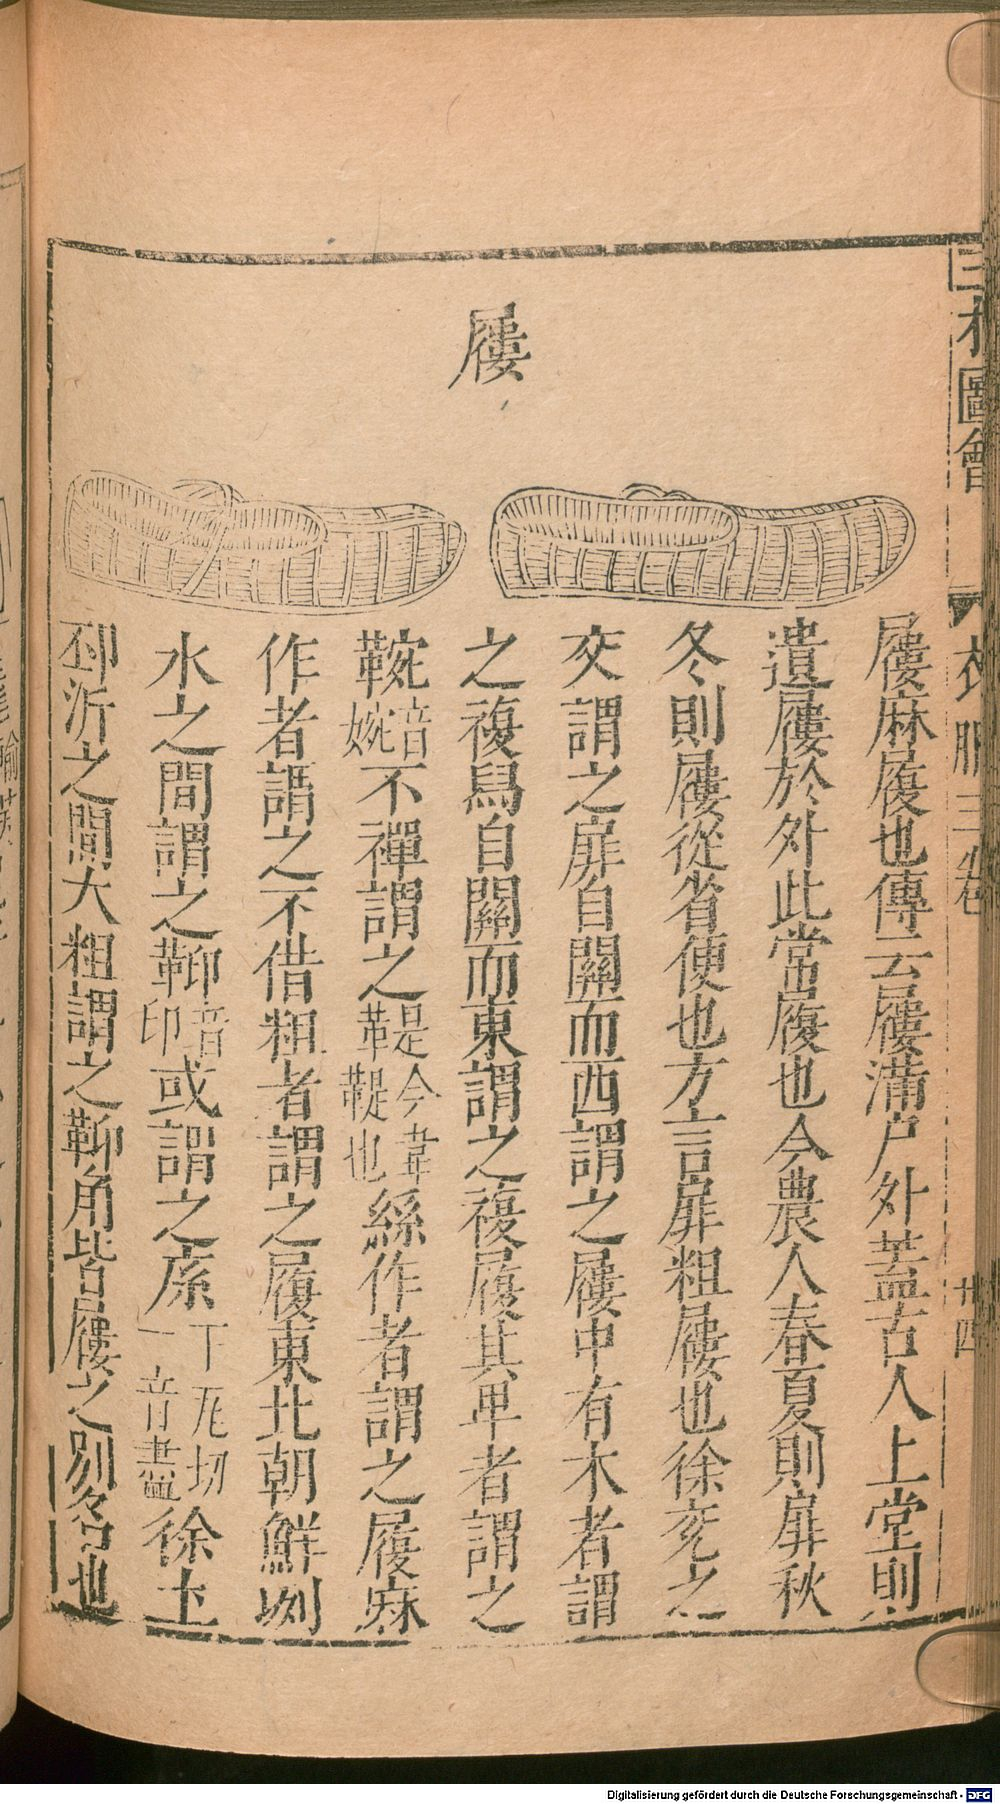 三才圖會
衣服三卷
廿四
屨
屨麻履也傳云屨滿户外蓋古人上堂則
遺屨於外此常履也今農人春夏則扉秋
冬則屨從省便也方言扉粗屨也徐兖之
交謂之扉自關而西謂之屨中有木者謂
之複舄自關而東謂之複履其卑者謂之
鞔音婉不襌謂之鞮今韋鞮也絲作者謂之履麻
作者謂之不借粗者謂之履東北朝鮮洌
水之間謂之䩕音印或謂之下瓦切一音畫徐土
邳沂之間大粗謂之䩕角皆屨之别名也
Digitalisierung gefördert durch die Deutsche Forschungsgemeinschaft - DFG